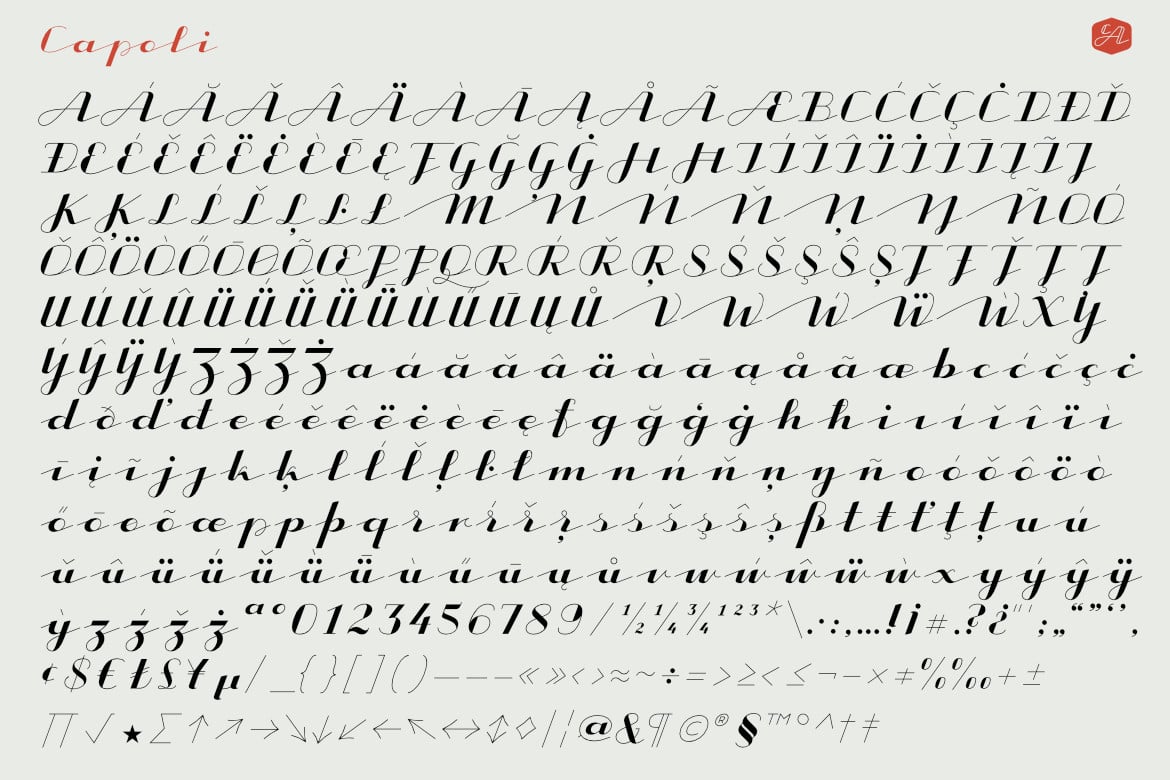 Capoli
A Á Ă Ǎ Â Ä À Ā Ą Å Ã Æ B C Ć Č Ç Ċ D Đ Ď
Đ E É Ě Ê Ë Ė È Ē Ę F G Ğ Ģ Ġ H Ħ I Í Ǐ Î Ï İ Ì Ī Į Ĩ J
K Ķ L Ĺ Ľ Ļ Ŀ Ł M N Ń Ň Ņ Ŋ Ñ O Ó
Ǒ Ô Ö Ò Ő Ō Ø Õ Œ P Þ Q R Ŕ Ř Ŗ S Ś Š Ş Ŝ Ș T Ŧ Ť Ţ Ț
U Ú Ǔ Û Ü Ǘ Ǚ Ǜ Ǖ Ù Ű Ū Ų Ů V W Ẃ Ẅ Ẁ X Y
Ý Ŷ Ÿ Ỳ Z Ź Ž Ż a á ă ǎ â ä à ā ą å ã æ b c ć č ç ċ
d ð ď đ e é ě ê ë ė è ē ę f g ğ ģ ġ h ħ i ı í ǐ î ï ì
ī į ĩ j ȷ k ķ l ĺ ľ ļ ŀ ł m n ń ň ņ ŋ ñ o ó ǒ ô ö ò
ő ō ø õ œ p p þ q r r ŕ ř ŗ s ś š ş ŝ ș ß t ŧ ť ţ ț u ú
ǔ û ü ǘ ǚ ǜ ǖ ù ű ū ų ů v w ẃ ŵ ẅ ẁ x y ý ŷ ÿ
ỳ z ź ž ż ª º 0 1 2 3 4 5 6 7 8 9 / ½ ¼ ¾ ¹ ² ³ * \ . · : , … ! ¡ # . ? ¿ " ' ; „ “ ” ‘ ’ ,
¢ $ € ₺ £ ¥ µ / _ { } [ ] ( ) — – - « » ‹ › ≈ ~ ÷ = > ≥ < ≤ ¬ − × ≠ % ‰ + ±
∏ √ ★ ∑ ↑ ↗ → ↘ ↓ ↙ ← ↖ ↔ ↕ ◊ | ¦ @ & ¶ © ® § ™ ° ^ † ‡